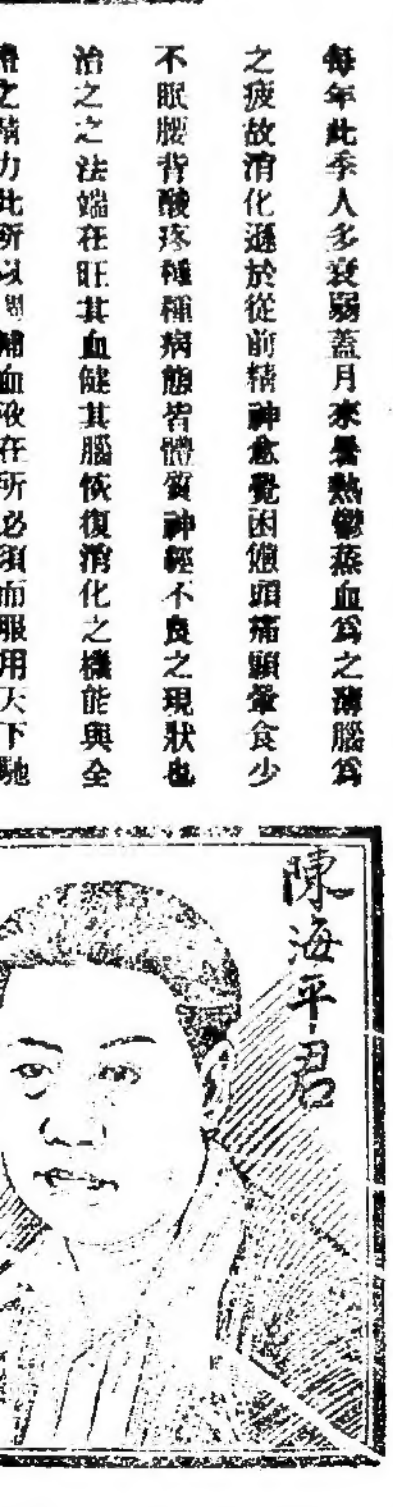 每年此季人多衰弱蓋月來暑熱鬱蒸血爲之薄腦爲
之疲故消化遜於從前精神愈覺困憊頭痛顱暈食少
不眠腰背酸疼種種病態皆體質神經不良之現狀也
治之之法端在旺其血健其腦恢復消化之機能與全
體之精力此所以補血液在所必須而服用天下馳
陳海平君